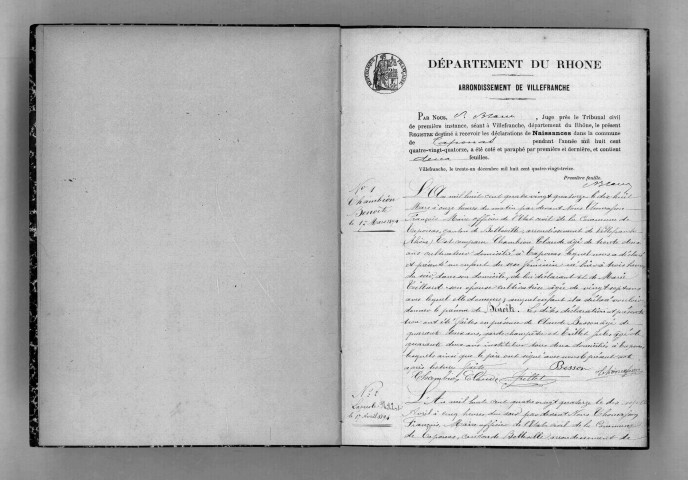 DÉPARTEMENT DU RHONE
ARRONDISSEMENT DE VILLEFRANCHE
PAR NOUS, Juge près le Tribunal civil
de première instance, séant à Villefranche, département du Rhône, le présent
REGISTRE destiné à recevoir les déclarations de Naissances dans la commune
de Taponas pendant l'année mil huit cent
quatre-vingt-quatorze, a été coté et paraphé par première et dernière, et contient
deux feuilles.
Villefranche, le trente-un décembre mil huit cent quatre-vingt-treize.
Première feuille.
No 1
Chambion
Benoite
le 17 Mars 1894
L'An mil huit cent quatre vingt quatorze le dix huit
Mars à onze heures du matin par devant Nous
François, Maire officier de l'Etat civil de la Commune de
Taponas, canton de Belleville, arrondissement de Villefranche
(Rhône) Est comparu Chambion Claude âgé de trente deux
ans cultivateur domicilié à Taponas lequel nous a déclaré
et présenté un enfant du sexe féminin né hier à trois heures
du soir, dans son domicile, de lui déclarant et de Marie
son épouse cultivatrice âgée de vingt sept
ans lequel elle demeure, auquel enfant il a déclaré vouloir
donner le prénom de Benoite. Les dites déclaration et présenta
tion ont été faites en présence de Claude Besson âgé de
quarante ans, garde champêtre et Jules âgé de
quarante deux ans instituteur tous deux domiciliés à Taponas
lesquels ainsi que le père ont signé avec nous le présent acte
après lecture faite
Besson
Chambion Claude
No 2
le 17 Avril 1894
L'An mil huit cent quatre vingt quatorze le dix
Avril à cinq heures du soir par devant Nous
François Maire officier de l'Etat civil de la Commune
de Taponas, canton de Belleville arrondissement de